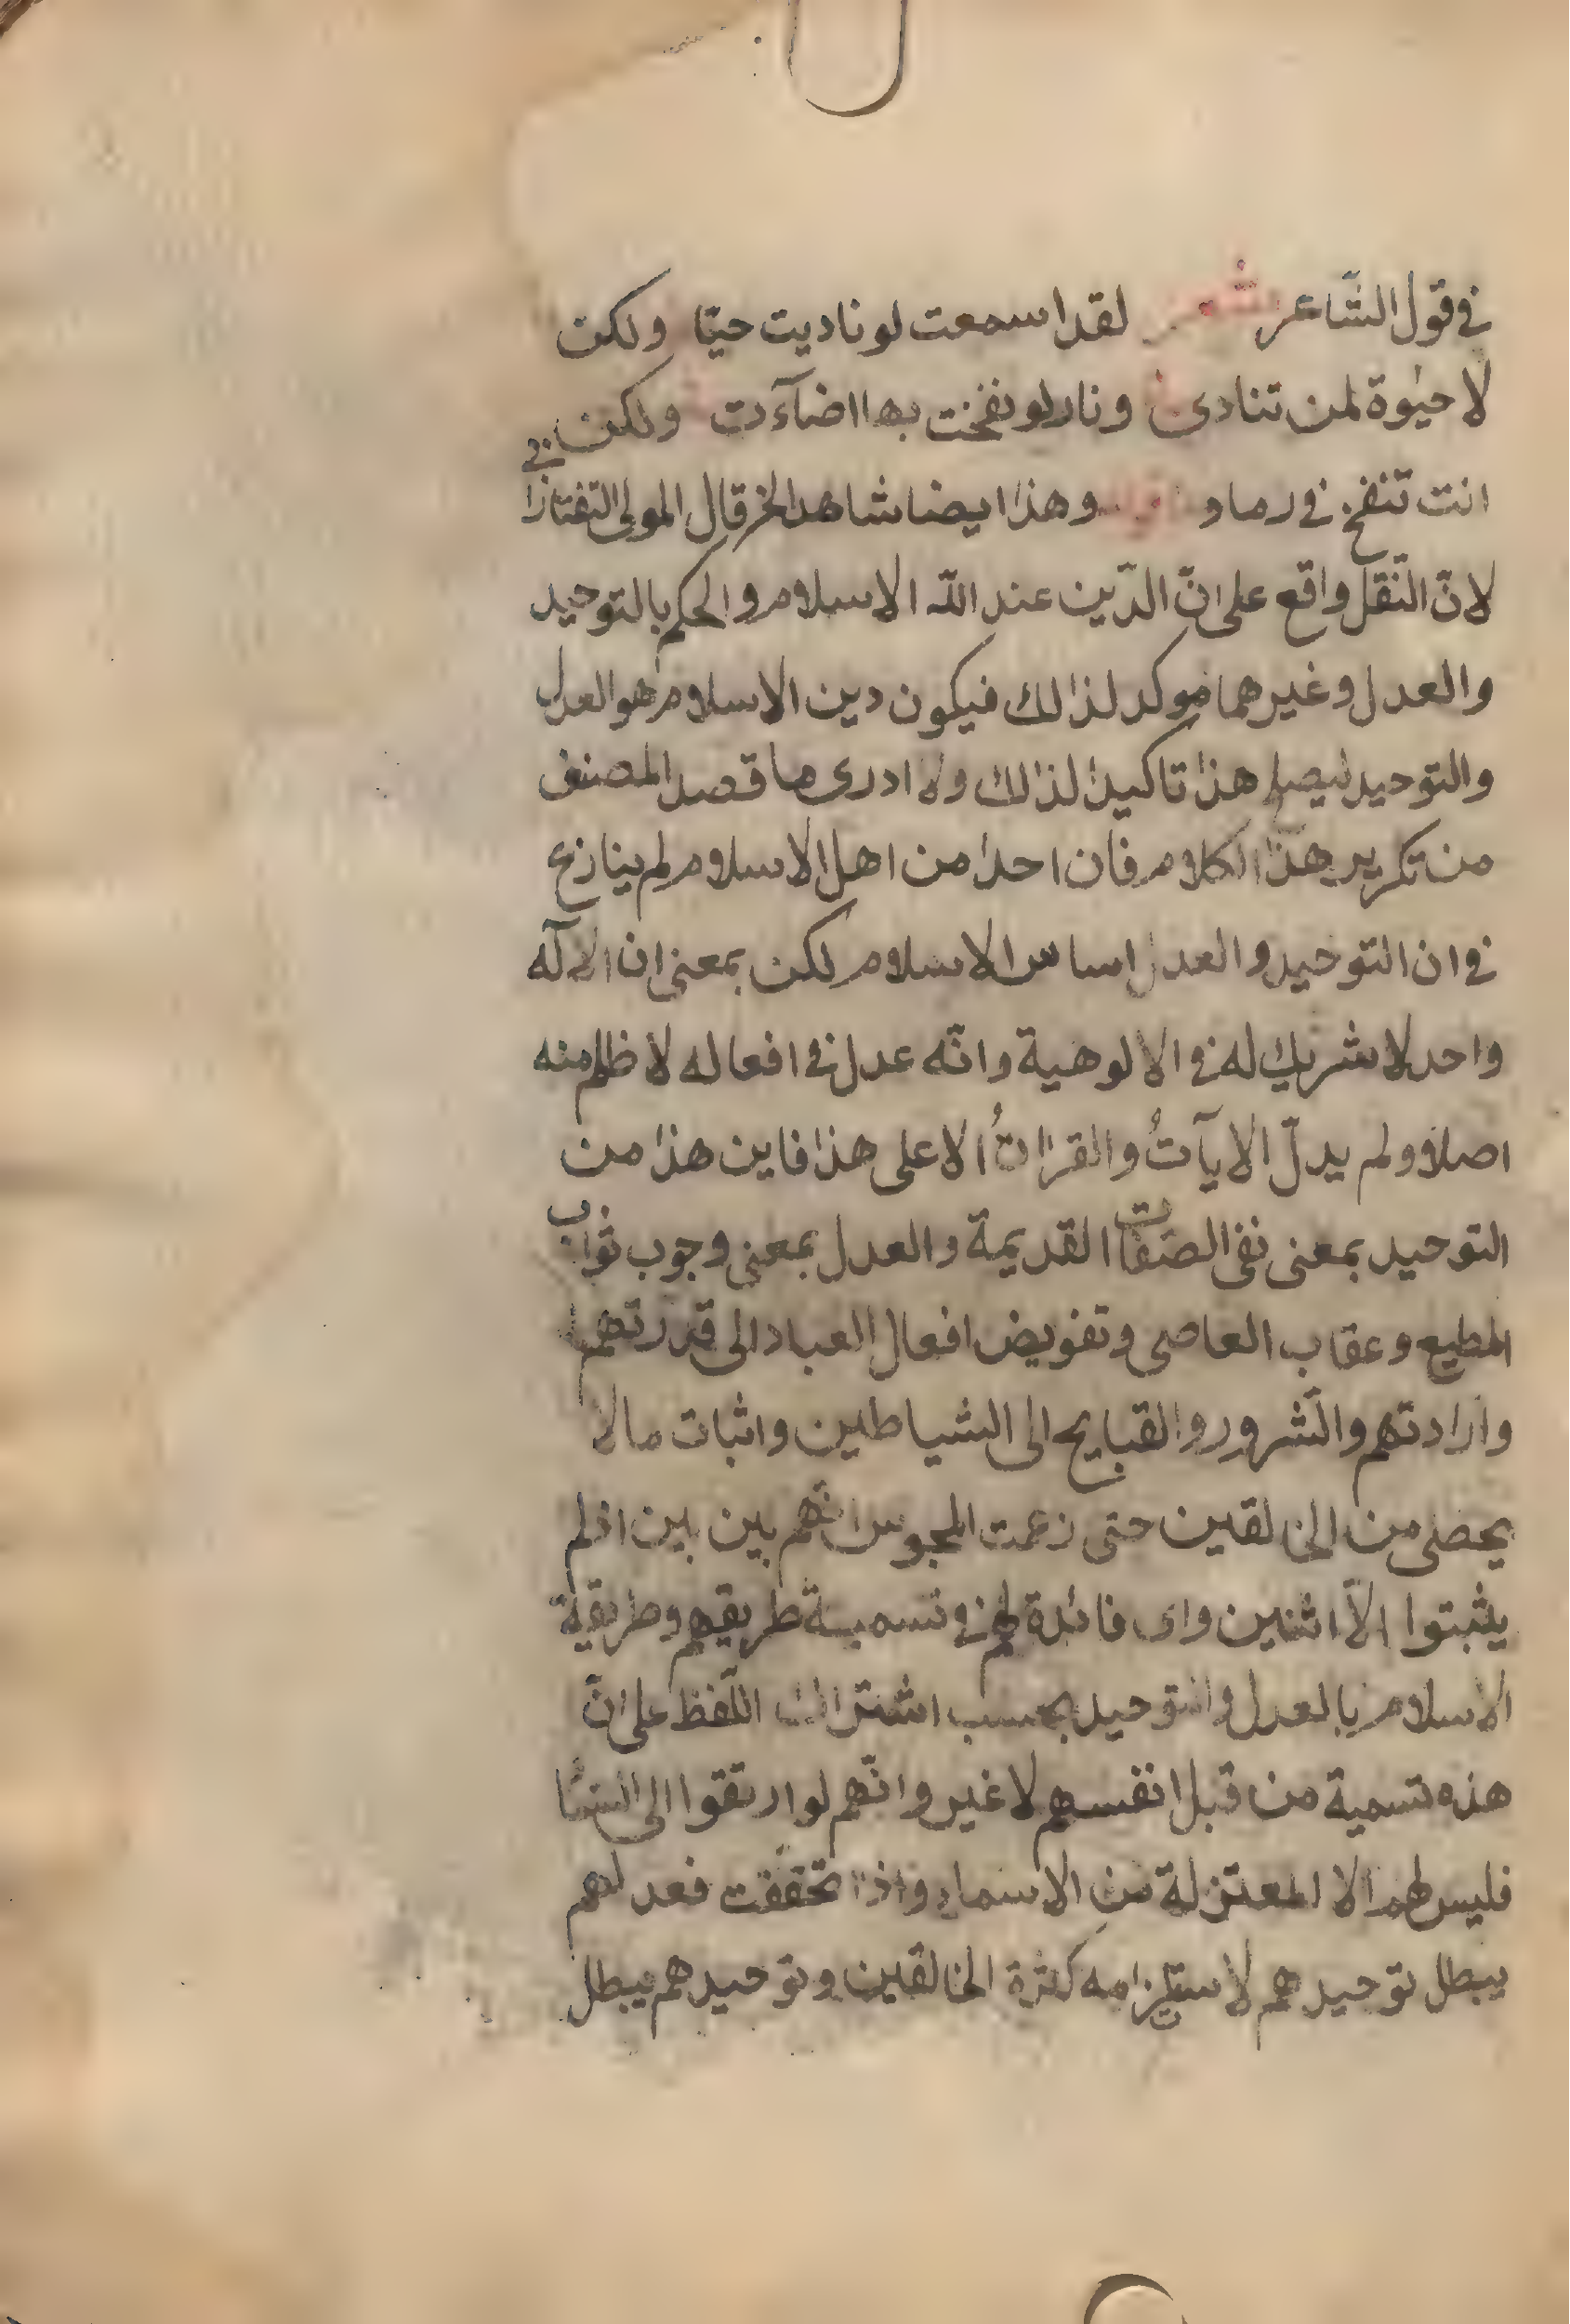 في قول الشّاعر شعر لقد اسمعت لو ناديت حيّا ولكن
لا حيٰوة لمن تنادى ونار لو نفخت بها اضآءت ولكن
انت تنفخ في رماد وهذا ايضا شاهد اخر قال المولى التفتازاني
لانّ النّقل واقع على انّ الدّين عند اللّه الاسلام والحكم بالتوحيد
والعدل وغيرهما موكد لذالك فيكون دين الاسلام هو العدل
والتوحيد ليصلح هذا تاكيدا لذالك ولا ادرى ما قصد المصنف
من تكرير هذا الكلام فان احدا من اهل الاسلام لم ينازع
في ان التوحيد والعدل اساس الاسلام لكن بمعنى ان الاآله
واحد لا شريك له في الالوهية وانّه عدل في افعاله لا ظلم منه
اصلا ولم يدلّ الايآتُ والقراٰنُ الا على هذا فاين هذا من
التوحيد بمعنى نفى الصّفات القديمة والعدل بمعنى وجوب ثواب
المطيع وعقاب العاصى وتفويض افعال العباد الى قدرتهم
وارادتهم والشّرور والقبايح الى الشياطين واثبات ما لا
يحصى من الخالقين حتى زعمت المجوس انّهم بين بين اذ لم
يثبتوا الاّ اثنين واى فائدة لهم في تسمية طريقهم وطريقة
الاسلام بالعدل والتوحيد بحسب اشتراك اللّفظ على انّ
هذه تسمية من قبل انفسهم لا غير وانّهم لو ارتقوا الى السّما
فليس لهم الا المعتزلة من الاسماء واذا تحققت فعدلهم
يبطل توحيدهم لاستلزامه كثرة الخالقين وتوحيدهم يبطل